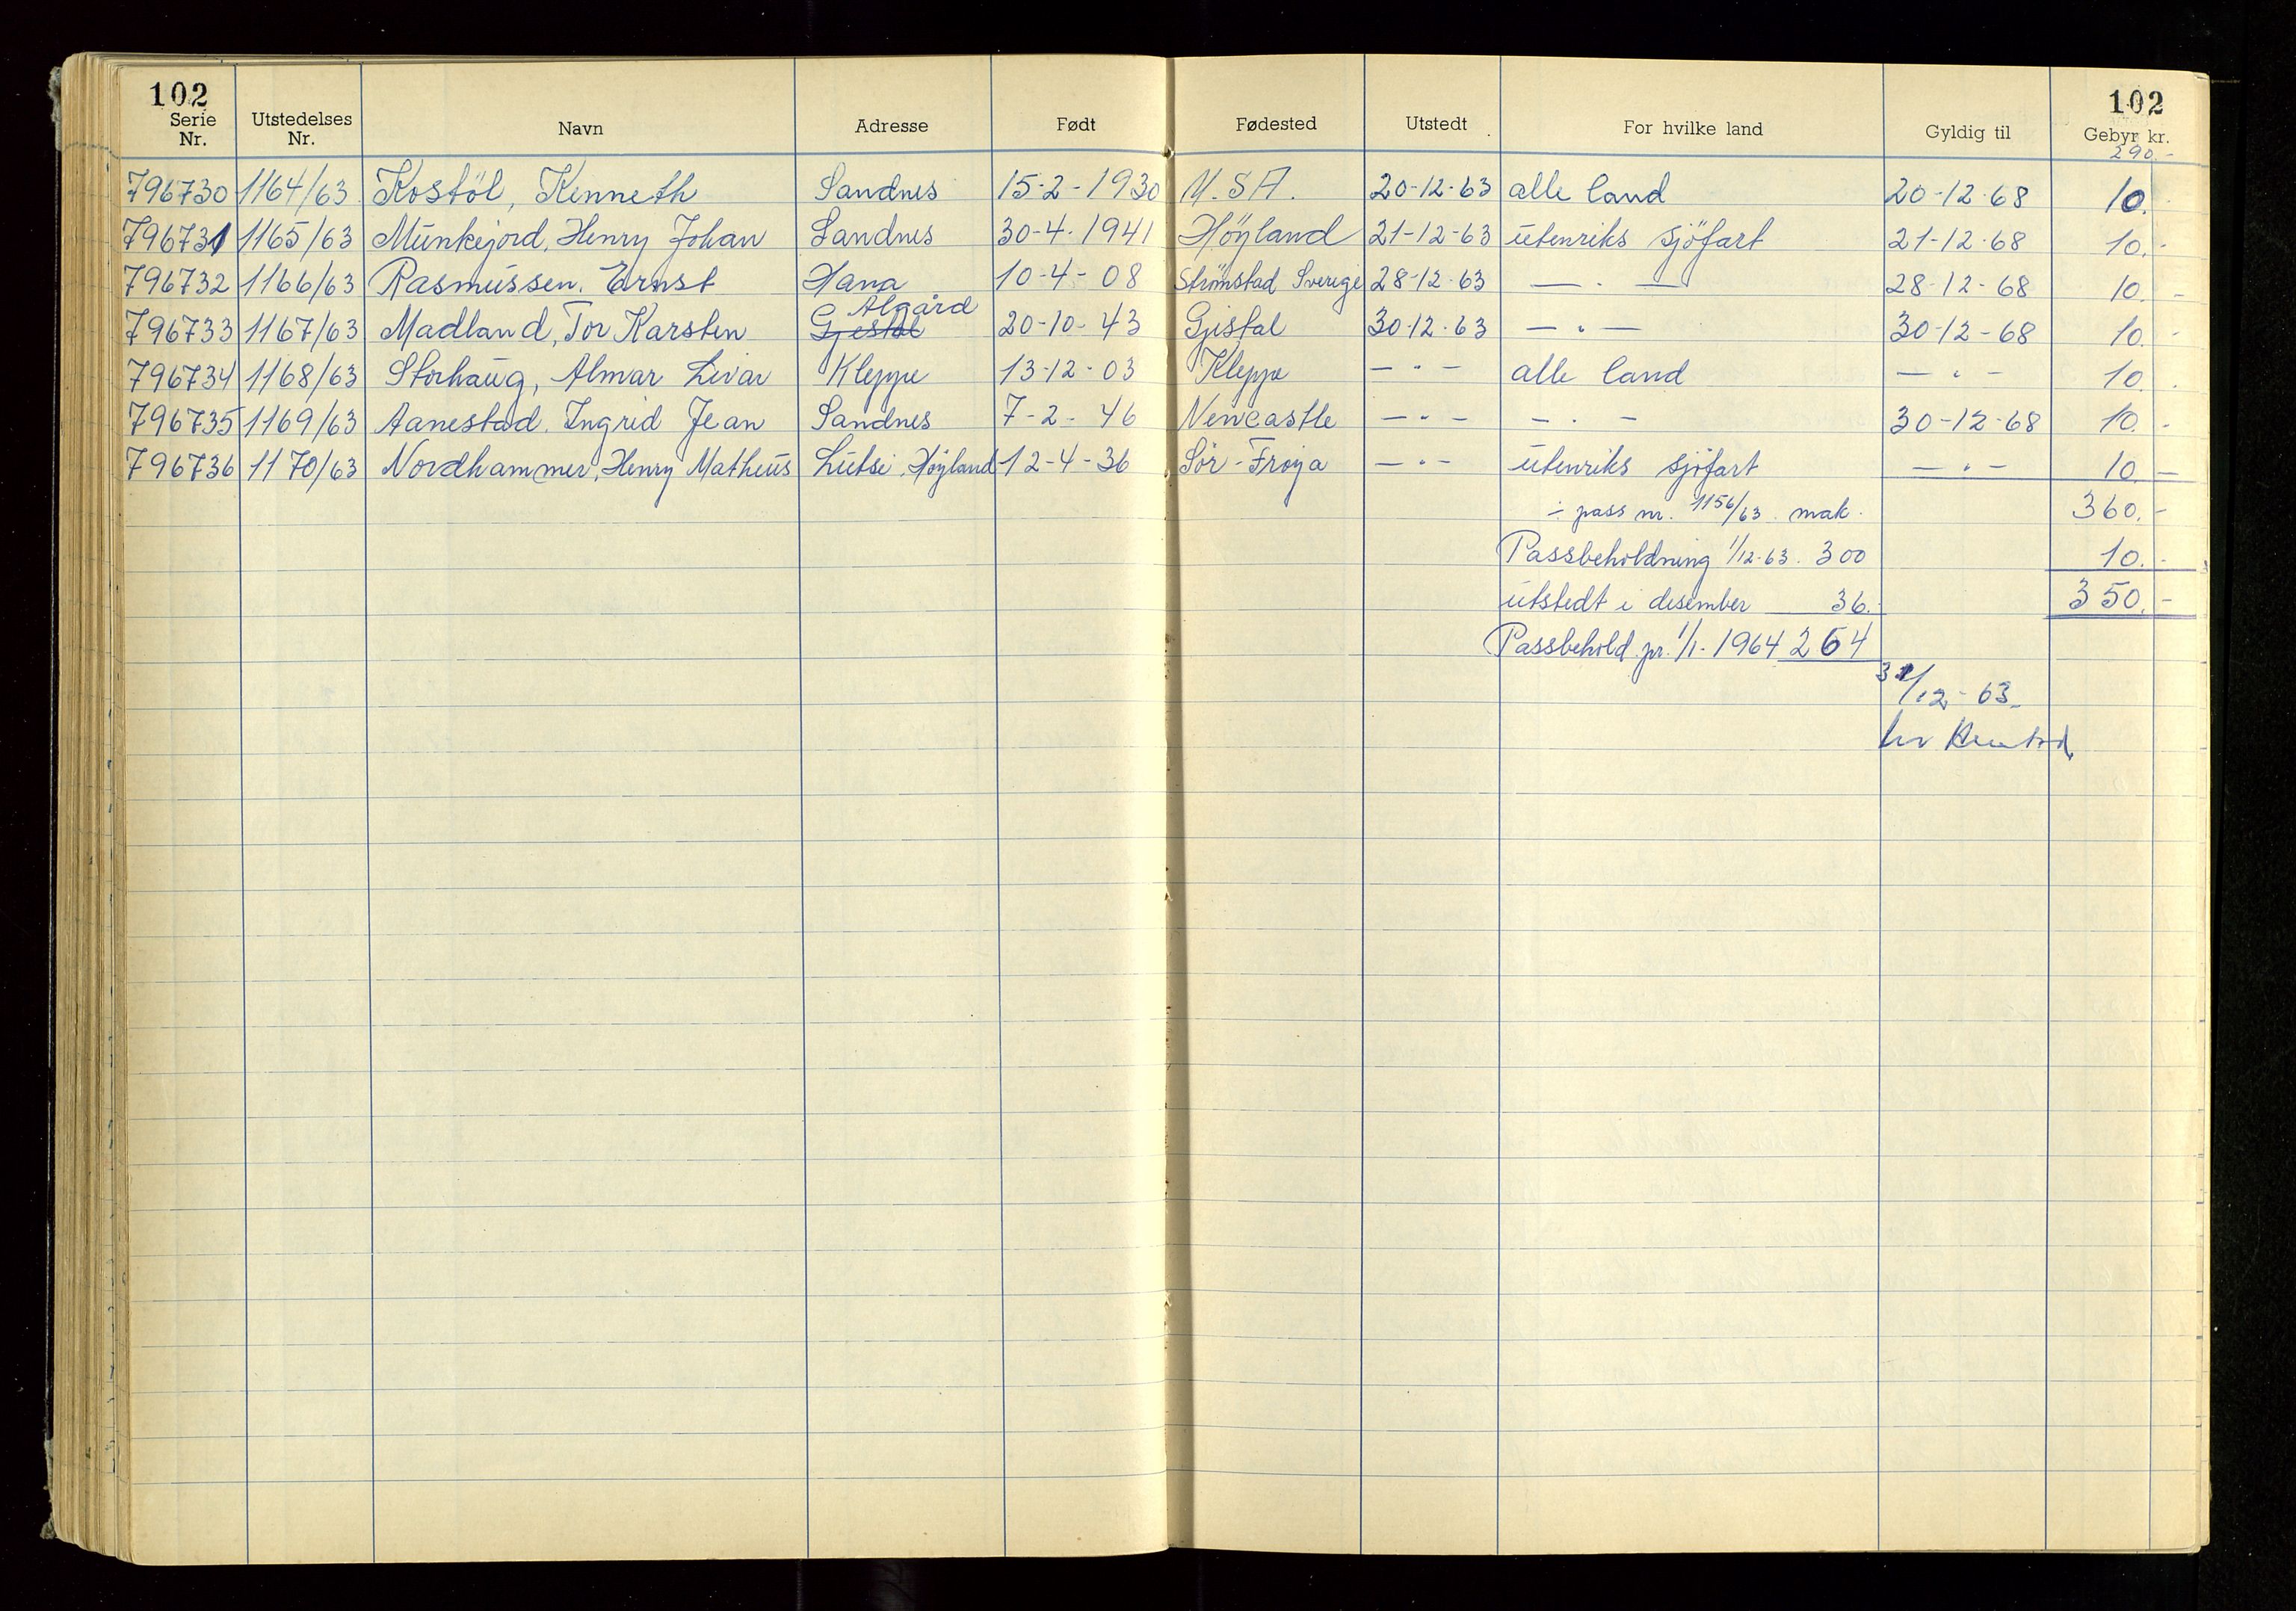 102 102
Serie Nr. Utstedelses Nr. Navn Adresse Født Fødested Utstedt For hvilke land Gyldig til Gebyr kr.
290.-
796730 1164/63 Kostöl, Kenneth Sandnes 15-2-1930 U.S.A. 20-12-63 alle land 20-12-68 10.-
796731 1165/63 Munkejord, Henry Johan Sandnes 30-4-1941 Höyland 21-12-63 utenriks sjöfart 21-12-68 10.-
796732 1166/63 Rasmussen, Ernst Hana 10-4-08 Strömstad Sverige 28-12-63 — " — 28-12-68 10.-
Algård
796733 1167/63 Madland, Tor Karsten Gjestal 20-10-43 Gjestal 30-12-63 — " — 30-12-68 10.-
796734 1168/63 Storhaug, Almar Livar Kleppe 13-12-03 Kleppe — " — alle land — " — 10.-
796735 1169/63 Aanestad, Ingrid Jean Sandnes 7-2-46 Newcastle — " — — " — 30-12-68 10.-
796736 1170/63 Nordhammer, Henry Matheus Lutsi, Höyland 12-4-36 Sör-Fröya — " — utenriks sjöfart — " — 10.-
÷ pass nr. 1156/63 mak. 360.-
Passbeholdning 1/12-63. 300 10.-
utstedt i desember 36.- 350.-
Passbehold. pr. 1/1-1964 264
31/12-63